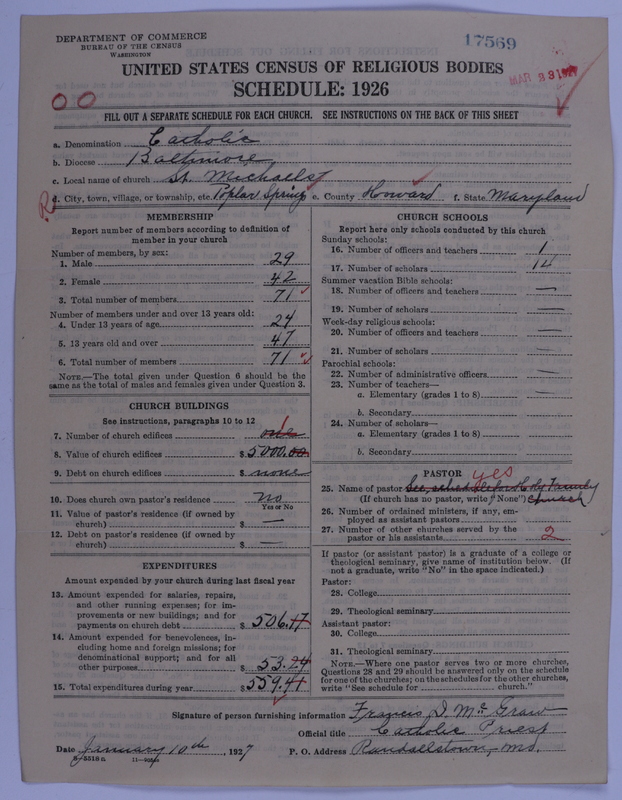 DEPARTMENT OF COMMERCE
BUREAU OF THE CENSUS
WASHINGTON
17569
UNITED STATES CENSUS OF RELIGIOUS BODIES
SCHEDULE: 1926
FILL OUT A SEPARATE SCHEDULE FOR EACH CHURCH. SEE INSTRUCTIONS ON THE BACK OF THIS SHEET
a. Denomination Catholic
b. Diocese Baltimore
c. Local name of church St. Michaels
d. City, town, village, or township, etc. Poplar Springs e. County Howard f. State Maryland
MEMBERSHIP
Report number of members according to definition of
member in your church
Number of members, by sex:
1. Male 29
2. Female 42
3. Total number of members 71
Number of members under and over 13 years old:
4. Under 13 years of age 24
5. 13 years old and over 47
6. Total number of members 71
NOTE.—The total given under Question 6 should be the
same as the total of males and females given under Question 3.
CHURCH BUILDINGS
See instructions, paragraphs 10 to 12
7. Number of church edifices one 1
8. Value of church edifices $ 5000.00
9. Debt on church edifices $ none
10. Does church own pastor's residence no
Yes or No
11. Value of pastor's residence (if owned by
church) $ —
12. Debt on pastor's residence (if owned by
church) $ —
EXPENDITURES
Amount expended by your church during last fiscal year
13. Amount expended for salaries, repairs,
and other running expenses; for im-
provements or new buildings; and for
payments on church debt $ 506.17
14. Amount expended for benevolences, in-
cluding home and foreign missions; for
denominational support; and for all
other purposes $ 53.24
15. Total expenditures during year $ 559.41
CHURCH SCHOOLS
Report here only schools conducted by this church
Sunday schools:
16. Number of officers and teachers 1
17. Number of scholars 14
Summer vacation Bible schools:
18. Number of officers and teachers —
19. Number of scholars —
Week-day religious schools:
20. Number of officers and teachers —
21. Number of scholars —
Parochial schools:
22. Number of administrative officers —
23. Number of teachers—
a. Elementary (grades 1 to 8) —
b. Secondary
24. Number of scholars—
a. Elementary (grades 1 to 8) —
b. Secondary
PASTOR yes
25. Name of pastor See schedule for Holy Family
(If church has no pastor, write "None") Church
26. Number of ordained ministers, if any, em-
ployed as assistant pastors
27. Number of other churches served by the
pastor or his assistants 2
If pastor (or assistant pastor) is a graduate of a college or
theological seminary, give name of institution below. (If
not a graduate, write "No" in the space indicated.)
Pastor:
28. College
29. Theological seminary
Assistant pastor:
30. College
31. Theological seminary
NOTE.—Where one pastor serves two or more churches,
Questions 28 and 29 should be answered only on the schedule
for one of the churches; on the schedules for the other churches,
write "See schedule for church."
Signature of person furnishing information Francis D. McGraw
Official title Catholic Priest
Date January 10th, 1927 P. O. Address Randallstown, Md.